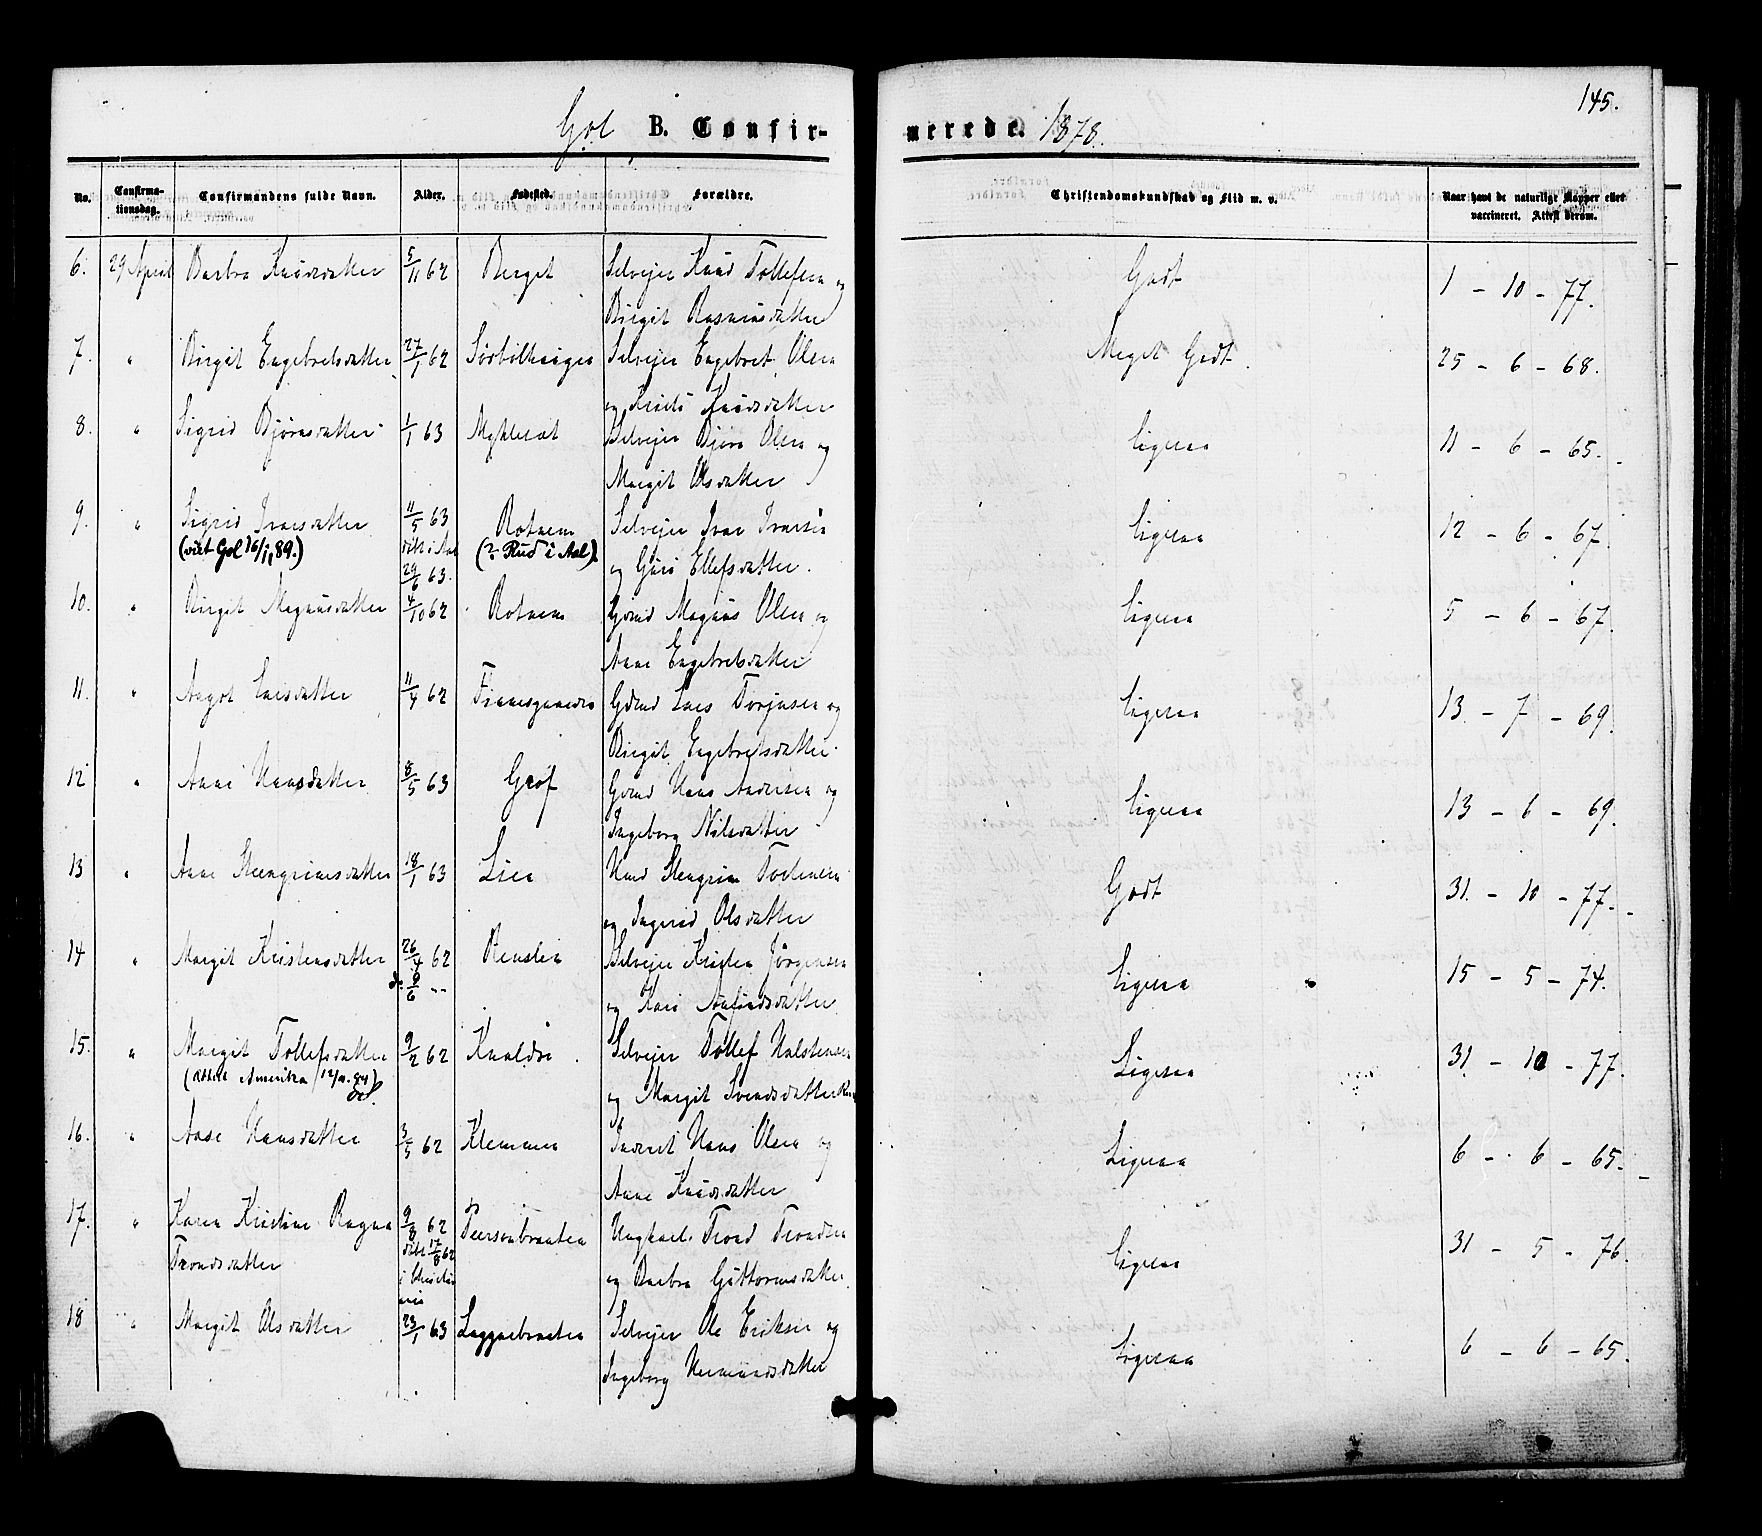 145.
Gol B. Confir- merede. 1878.
No. Confirma-tionsdag. Confirmandens fulde Navn. Alder. Fødested. Forældre. Christendomskundskab og Flid m. v. Naar havt de naturlige Kopper eller vaccineret. Attest derom.
6. 29 April Barbra Knudsdatter 5/11 62 Berget Selveier Knud Tollefsen og Godt 1 - 10 - 77.
Birgit Rasmusdatter
7. " Birgit Engebretsdatter 27/1 62 Selveier Engebret Olsen Meget Godt. 25 - 6 - 68.
og Knudsdatter
8. " Sigrid Bjørnsdatter 1/1 63 Selveier Bjørn Olsen og Ligesaa 11 - 6 - 65.
Margit Olsdatter
9. " Sigrid Ivarsdatter 11/5 63 Rotnem Selveier Ivar Ivarsen Ligesaa 12 - 6 - 67.
(viet Gol 16/11 89.) døbt i Aal (? Rud i Aal). og Guro Ellefsdatter.
29/6 63.
10. " Birgit Magnusdatter 4/10 62 Rotnem Gbrmd Magnus Olsen og Ligesaa 5 - 6 - 67.
Anne Engebretsdatter
11. " Angot Larsdatter 11/4 62 Gbrmd Lars Torjusen og Ligesaa 13 - 7 - 69.
Birgit Engebretsdatter.
12 " Anne Hansdatter 8/5 63 Grøf Gbrmd Hans Andersen og Ligesaa 13 - 6 - 69.
Ingeborg Nilsdatter
13 " Anne Steengrimsdatter 18/1 63 Lien Hmd Stengrim Torstensen Godt 31. - 10 - 77.
og Ingerid Olsdatter
14 " Margit Kristensdatter 26/4 62 Renslen Selveier Kristen Jørgensen Ligesaa 15 - 5 - 74.
d: 9/6 " og Kari Amundsdatter
15. " Margit Tollefsdatter 9/2 62 Selveier Tollef Halstensen Ligesaa 31 - 10 - 77.
(Attest Amerika 12/4. 84) og Margit Svendsdatter
16. " Aase Hansdatter 3/5 62 Klemmen Inderst Hans Olsen og Ligesaa 6 - 6 - 65.
Anne Knudsdatter
17. " Karen Kristine Ragna 9/8 62 Ungkarl Trond Trondsen Ligesaa 31 - 5 - 76.
Trondsdatter døbt 17/8 62 og Barbra Guttormsdatter
i Christiania
18 " Margit Olsdatter 23/1 63 Laggerbraaten Selveier Ole Eriksen og Ligesaa 6 - 6 - 65.
Ingeborg Hermundsdatter